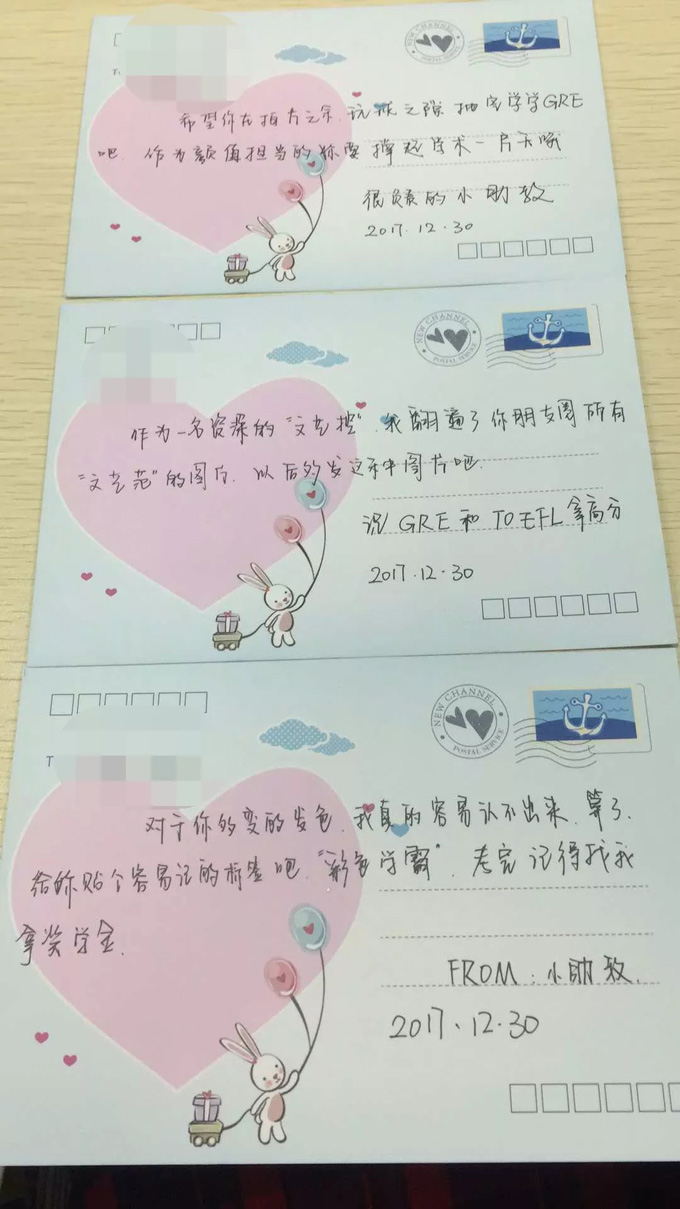 T
希望你在拍片之余、玩耍之隙 抽空学学GRE
吧. 作为颜值担当的你要撑起学术一片天哦
很负责的小助教
2017.12.30
NEW CHANNEL
POSTAL SERVICE
作为一名资深的“文艺控”,我翻遍了你朋友圈所有
“文艺范”的图片. 以后多发这种图片吧.
祝 GRE 和 TOEFL 拿高分
2017.12.30
NEW CHANNEL
POSTAL SERVICE
T
对于你多变的发色,我真的容易认不出来.算了,
给你贴个容易记的标签吧.“彩色学霸”. 考完记得找我
拿奖学金.
FROM:小助教.
2017.12.30
NEW CHANNEL
POSTAL SERVICE